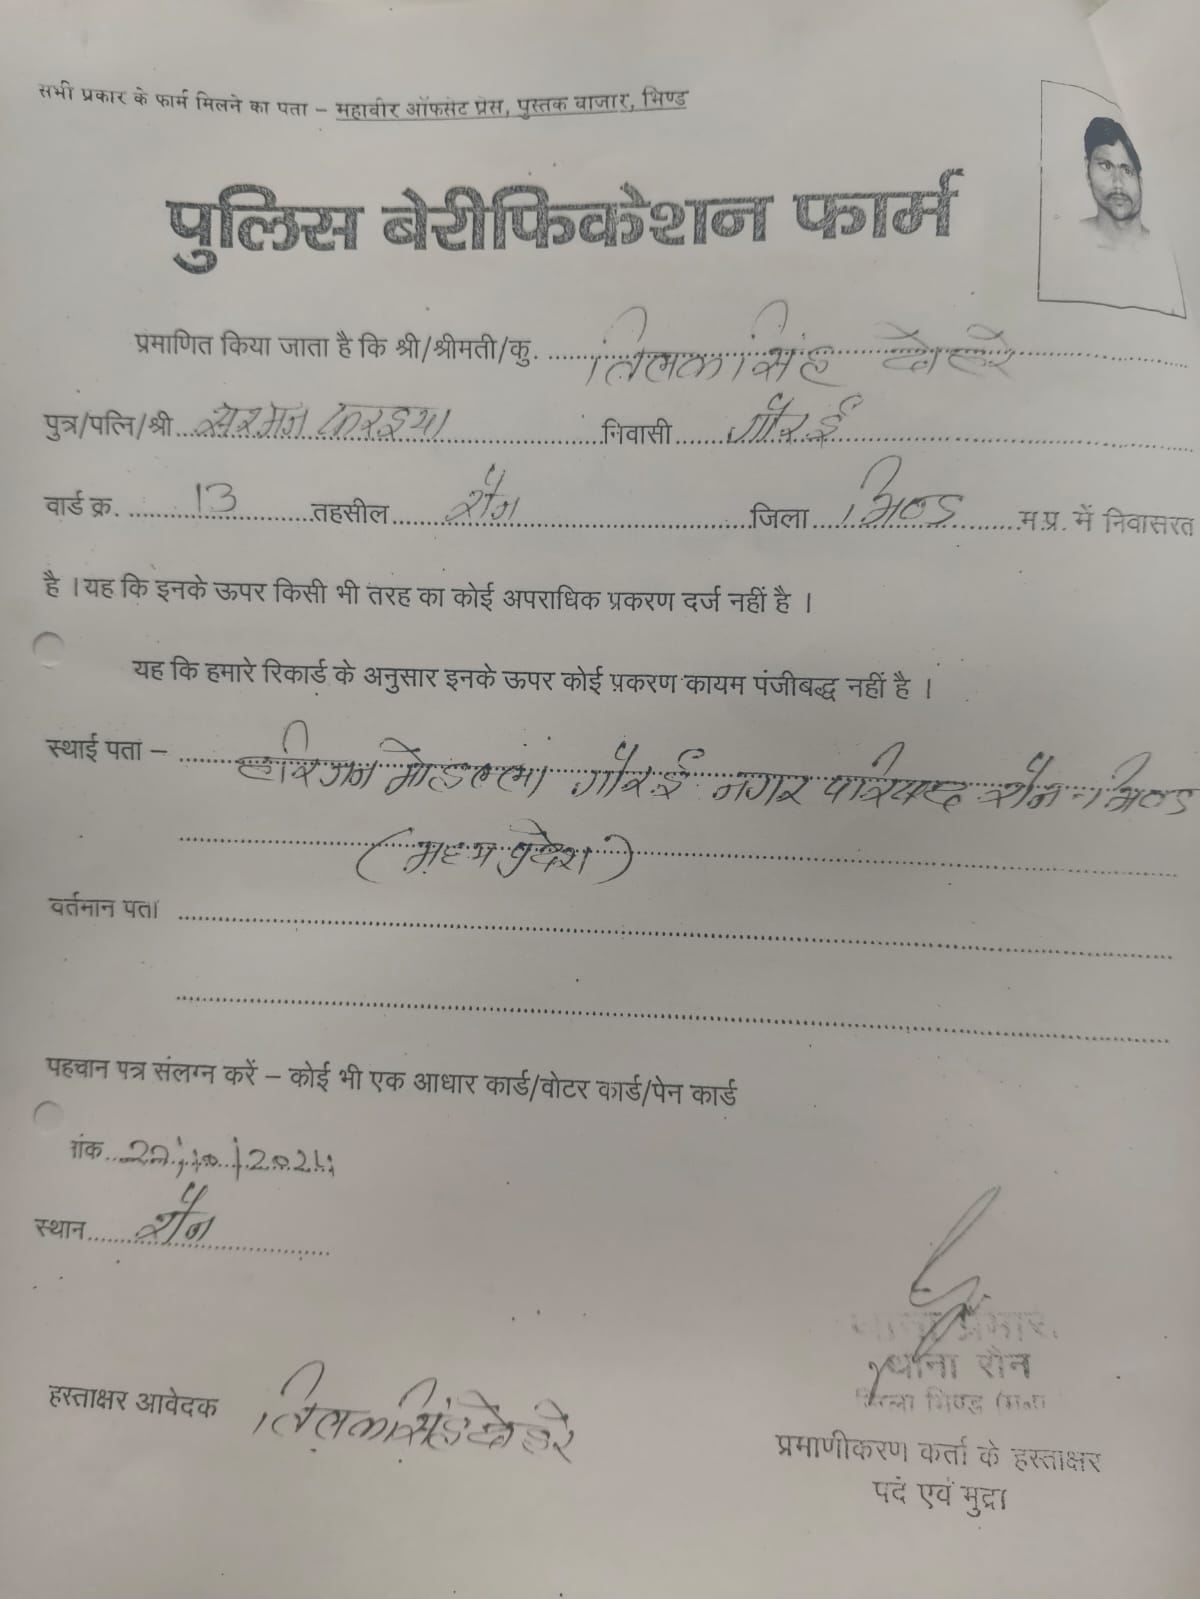 सभी प्रकार के फार्म मिलने का पता – महावीर ऑफसेट प्रेस, पुस्तक बाजार, भिण्ड
पुलिस बेरीफिकेशन फार्म
प्रमाणित किया जाता है कि श्री/श्रीमती/कु. तिलक सिंह दोहरे
पुत्र/पत्नि/श्री सरमन करइया निवासी गोरई
वार्ड क्र. 13 तहसील रौन जिला भिण्ड म.प्र. में निवासरत
है । यह कि इनके ऊपर किसी भी तरह का कोई अपराधिक प्रकरण दर्ज नहीं है ।
यह कि हमारे रिकार्ड के अनुसार इनके ऊपर कोई प्रकरण कायम पंजीबद्ध नहीं है ।
स्थाई पता – हरिजन मोहल्ला गोरई नगर परिषद रौन भिण्ड
(मध्य प्रदेश)
वर्तमान पता
पहचान पत्र संलग्न करें – कोई भी एक आधार कार्ड/वोटर कार्ड/पेन कार्ड
ांक 22/10/
स्थान रौन
थाना रौन
जिला भिण्ड (म.प्र.)
हस्ताक्षर आवेदक तिलक सिंह दोहरे
प्रमाणीकरण कर्ता के हस्ताक्षर
पद एवं मुद्रा